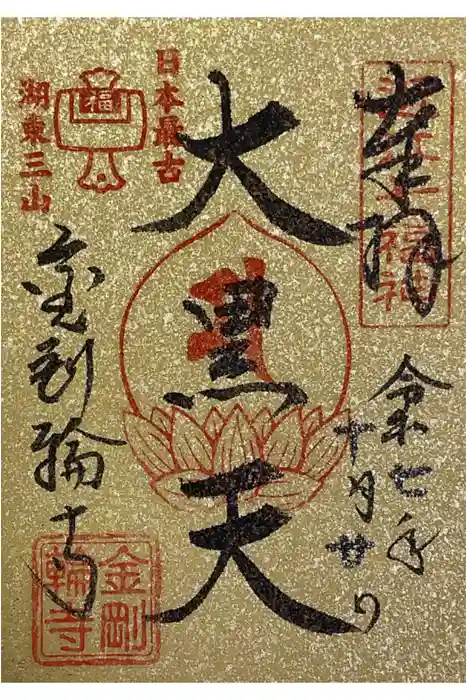 奉拝
令和七年
十月廿日
大黒天
日本最古
湖東三山
福
金剛輪寺
金剛輪寺